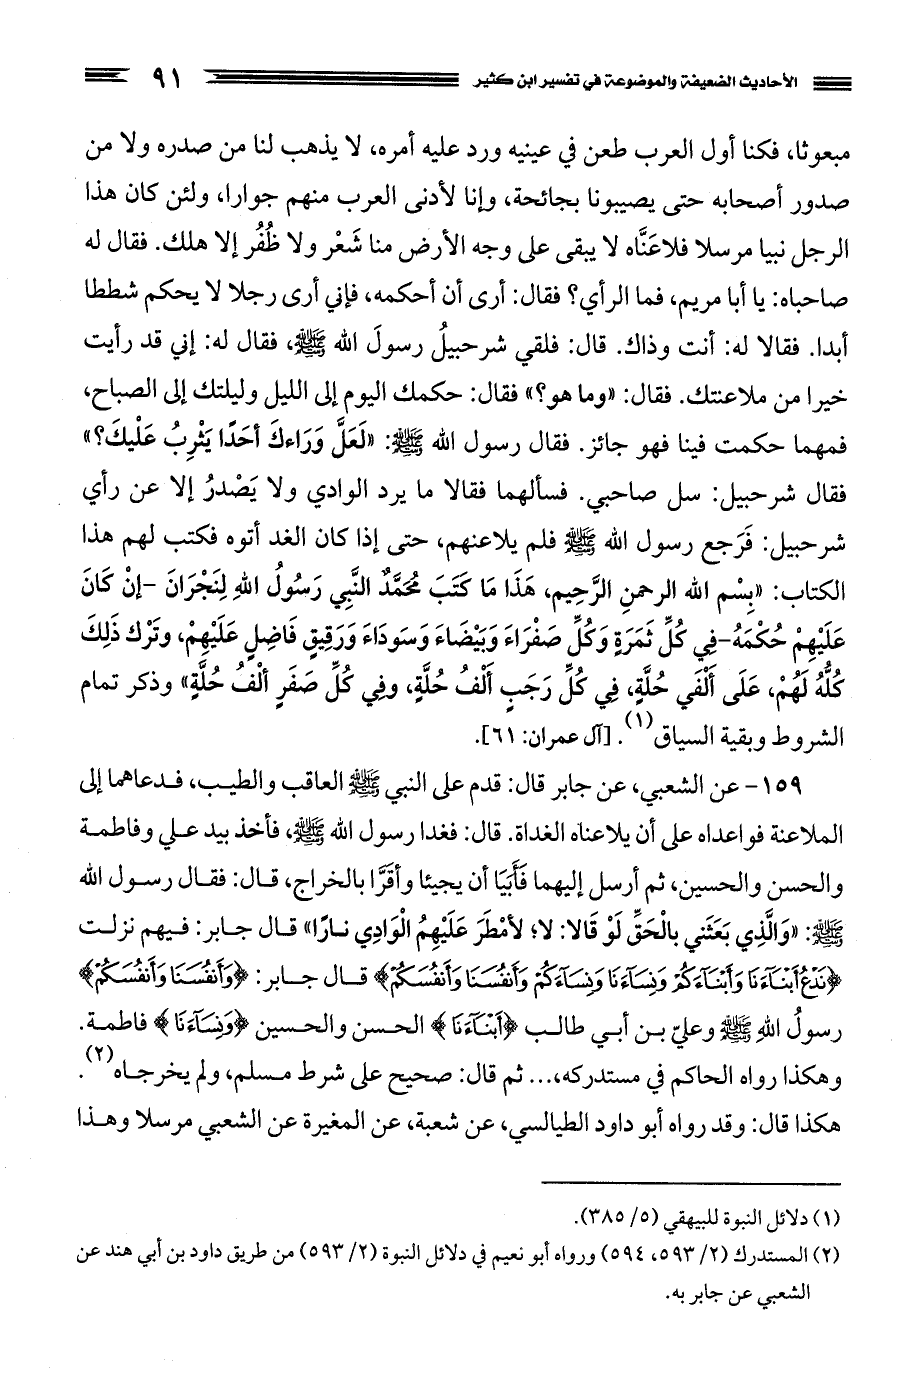 الأحاديث الضعيفة والموضوعة في تفسير ابن كثير ٩١
مبعوثا، فكنا أول العرب طعن في عينيه ورد عليه أمره، لا يذهب لنا من صدره ولا من
صدور أصحابه حتى يصيبونا بجائحة، وإنا لأدنى العرب منهم جوارا، ولئن كان هذا
الرجل نبيا مرسلا فلاعَنَّاه لا يبقى على وجه الأرض منا شَعْر ولا ظُفُر إلا هلك. فقال له
صاحباه: يا أبا مريم، فما الرأي؟ فقال: أرى أن أحكمه، فإني أرى رجلا لا يحكم شططا
أبدا. فقالا له: أنت وذاك. قال: فلقي شرحبيلُ رسولَ الله ﷺ، فقال له: إني قد رأيت
خيرا من ملاعنتك. فقال: «وما هو؟» فقال: حكمك اليوم إلى الليل وليلتك إلى الصباح،
فمهما حكمت فينا فهو جائز. فقال رسول الله ﷺ: «لَعَلَّ وَرَاءكَ أحَدًا يَثْرِبُ عَلَيكَ؟»
فقال شرحبيل: سل صاحبي. فسألهما فقالا ما يرد الوادي ولا يَصْدرُ إلا عن رأي
شرحبيل: فَرَجع رسول الله ﷺ فلم يلاعنهم، حتى إذا كان الغد أتوه فكتب لهم هذا
الكتاب: «بِسْم الله الرحمنِ الرَّحِيم، هَذَا مَا كَتَبَ مُحَمَّدٌ النَّبِي رَسُولُ اللهِ لِنَجْرَانَ -إنْ كَانَ
عَلَيهِمْ حُكْمَهُ-فِي كُلِّ ثَمَرَةٍ وَكُلِّ صَفْرَاءَ وَبَيْضَاءَ وَسَودَاءَ وَرَقِيقٍ فَاضِلٍ عَلَيهِمْ، وتَرْك ذَلِكَ
كُلُّهُ لَهُمْ، عَلَى ألْفَي حُلَّةٍ، فِي كُلِّ رَجَبٍ ألْفُ حُلَّةٍ، وفِي كُلِّ صَفَرٍ ألْفُ حُلَّةٍ» وذكر تمام
الشروط وبقية السياق(١). [آل عمران: ٦١].
١٥٩- عن الشعبي، عن جابر قال: قدم على النبي ﷺ العاقب والطيب، فدعاهما إلى
الملاعنة فواعداه على أن يلاعناه الغداة. قال: فغدا رسول الله ﷺ، فأخذ بيد علي وفاطمة
والحسن والحسين، ثم أرسل إليهما فَأَبَيَا أن يجيئا وأقَرَّا بالخراج، قال: فقال رسول الله
ﷺ: «وَالَّذِي بَعَثَني بِالْحَقِّ لَوْ قَالا: لا؛ لأمْطَرَ عَلَيهِمُ الْوَادِي نارًا» قال جابر: فيهم نزلت
﴿نَدْعُ أَبْنَآءَنَا وَأَبْنَآءَكُمْ وَنِسَآءَنَا وَنِسَآءَكُمْ وَأَنفُسَنَا وَأَنفُسَكُمْ﴾ قال جابر: ﴿وَأَنفُسَنَا وَأَنفُسَكُمْ﴾
رسولُ اللهِ ﷺ وعليّ بن أبي طالب ﴿أَبْنَآءَنَا﴾ الحسن والحسين ﴿وَنِسَآءَنَا﴾ فاطمة.
وهكذا رواه الحاكم في مستدركه،... ثم قال: صحيح على شرط مسلم، ولم يخرجاه(٢).
هكذا قال: وقد رواه أبو داود الطيالسي، عن شعبة، عن المغيرة عن الشعبي مرسلا وهذا
(١) دلائل النبوة للبيهقي (٥/ ٣٨٥).
(٢) المستدرك (٢/ ٥٩٣، ٥٩٤) ورواه أبو نعيم في دلائل النبوة (٢/ ٥٩٣) من طريق داود بن أبي هند عن
الشعبي عن جابر به.